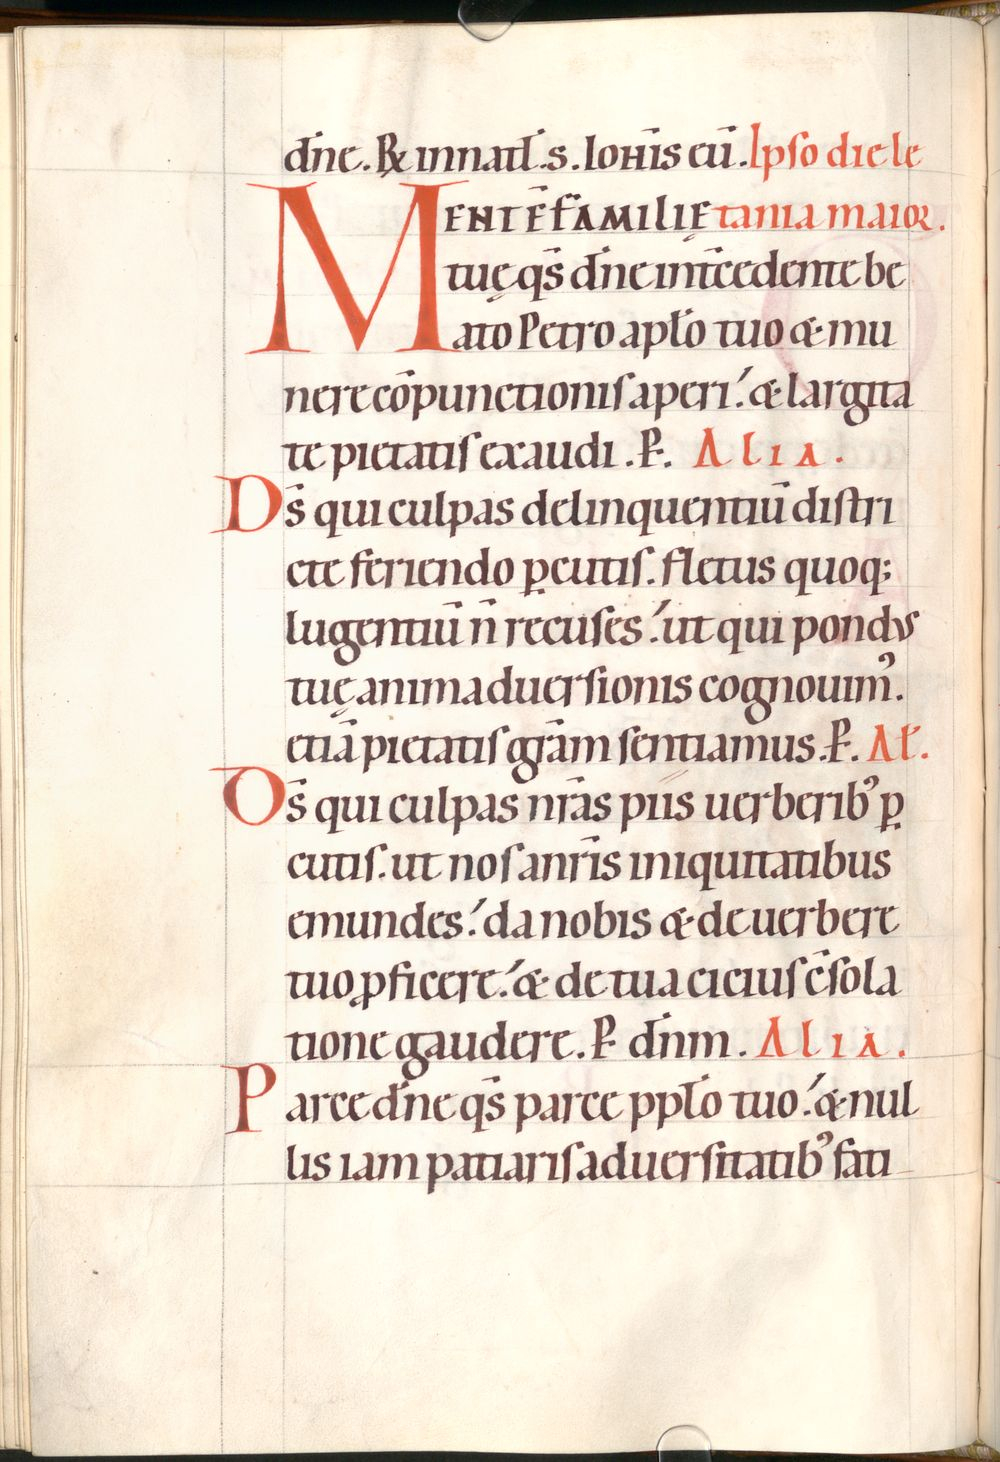 dn̄e. R& in natł. s. Ioħis eū. Ipso die le
MENTĒ FAMILIĘ tania maior.
tuę qs̄ dn̄e int̄cedente be
ato Petro apło tuo & mu
nere cōpunctionis aperi. & largita
te pietatis exaudi. P. Alia.
Ds̄ qui culpas delinquentiū distri
cte feriendo ꝑcutis. fletus quoq;
lugentiū n̄ recuses. ut qui pondus
tuę animaduersionis cognouim᾽.
etiā pietatis grām sentiamus. P. Ał.
Ds̄ qui culpas nr̄as piis uerberib᾽ ꝑ
cutis. ut nos a nr̄is iniquitatibus
emundes. da nobis & de uerbere
tuo ꝓficere. & de tua cicius c̄sola
tione gaudere. P dn̄m. Alia.
Parce dn̄e qs̄ parce ppło tuo. & nul
lis iam patiaris aduersitatib᾽ fati